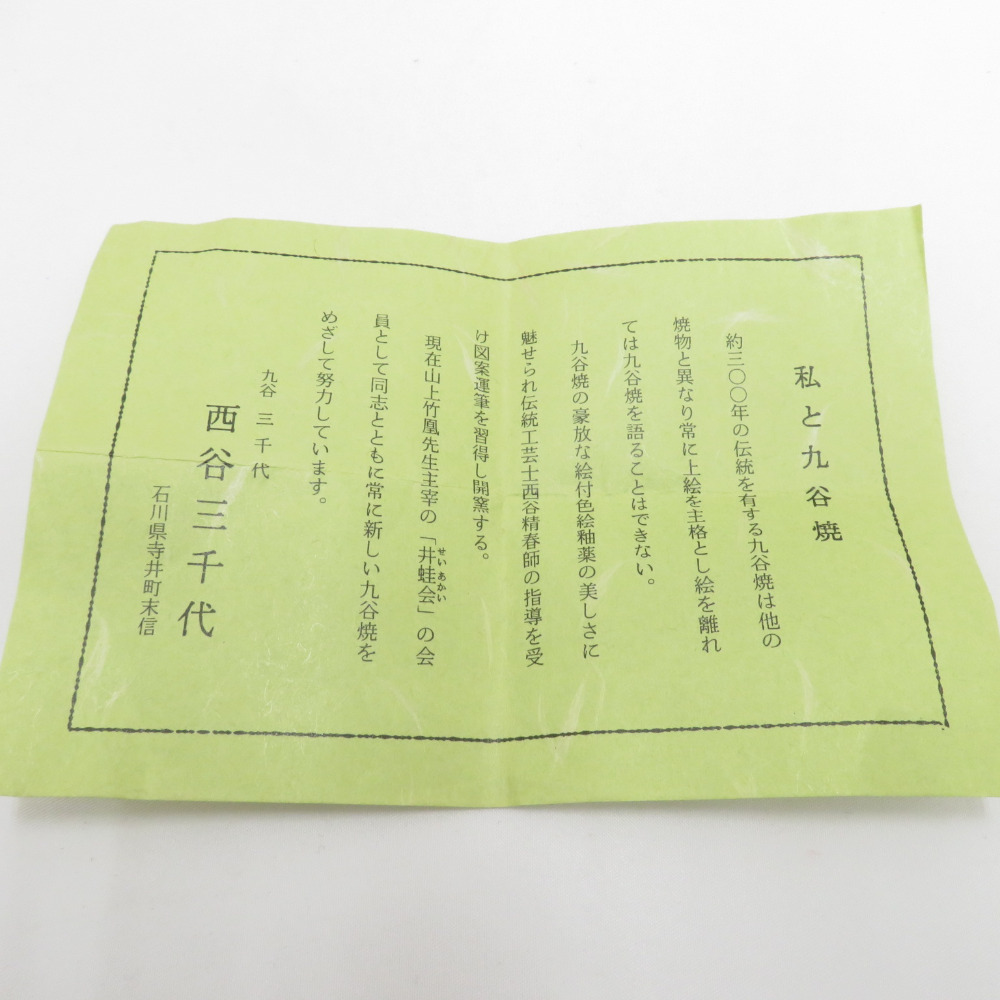 私と九谷焼
約三〇〇年の伝統を有する九谷焼は他の
焼物と異なり常に上絵を主格とし絵を離れ
ては九谷焼を語ることはできない。
九谷焼の豪放な絵付色絵釉薬の美しさに
魅せられ伝統工芸士西谷精春師の指導を受
け図案運筆を習得し開窯する。
現在山上竹凰先生主宰の「井蛙会」の会
せいあかい
員として同志とともに常に新しい九谷焼を
めざして努力しています。
九谷 三千代
西谷三千代
石川県寺井町末信